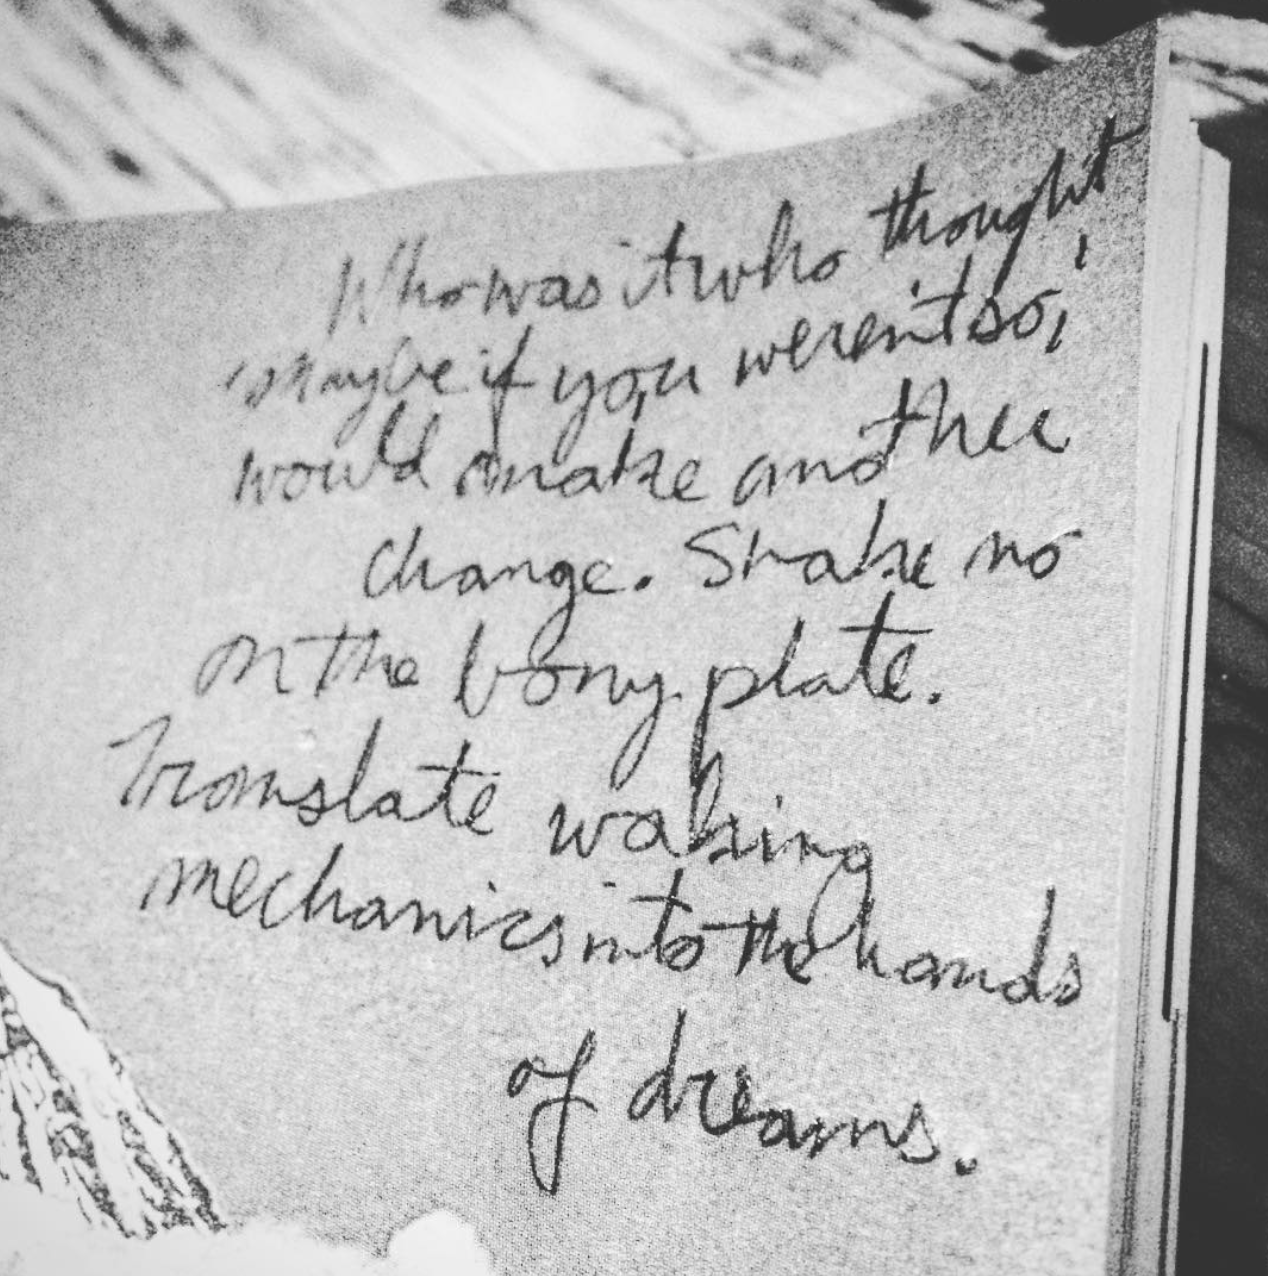 Who was it who thought
"Maybe if you weren't so,"
would make another
change. Shake no
on the bony plate.
Translate waking
mechanics into the hands
of dreams.